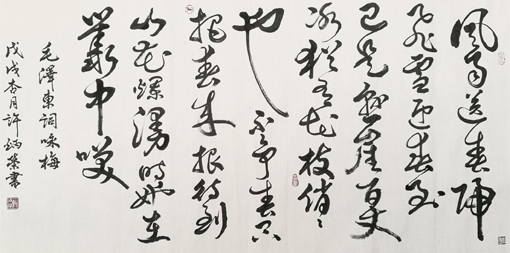 風雨送春歸
飛雪迎春到
已是懸崖百丈
冰猶有花枝俏〻
也不爭春只
把春來報待到
山花爛漫時她在
叢中笑
毛澤東詞咏梅
戊戌杏月許炳榮書